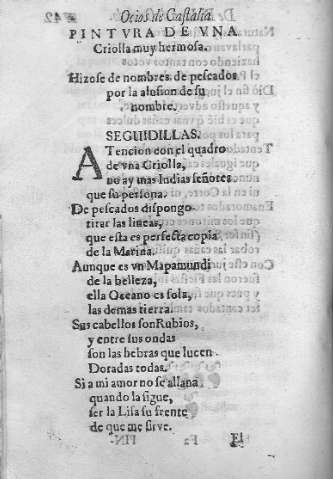 42
Ocios de Castalia
PINTVRA DE VNA
Criolla muy hermosa.
Hizose de nombres de pescados
por la alusion de su
nombre.
SEGUIDILLAS.
ATencion con el quadro
de vna Criolla,
no ay mas Indias señores
que su persona.
De pescados dispongo
tirar las lineas,
que esta es perfecta copia
de la Marina.
Aunque es vn Mapamundi
de la belleza,
ella Oceano es sola,
las demas tierra.
Sus cabellos son Rubios,
y entre sus ondas
son las hebras que lucen
Doradas todas.
Si a mi amor no se allana
quando la sigue,
ser la Lisa su frente
de que me sirve.
El